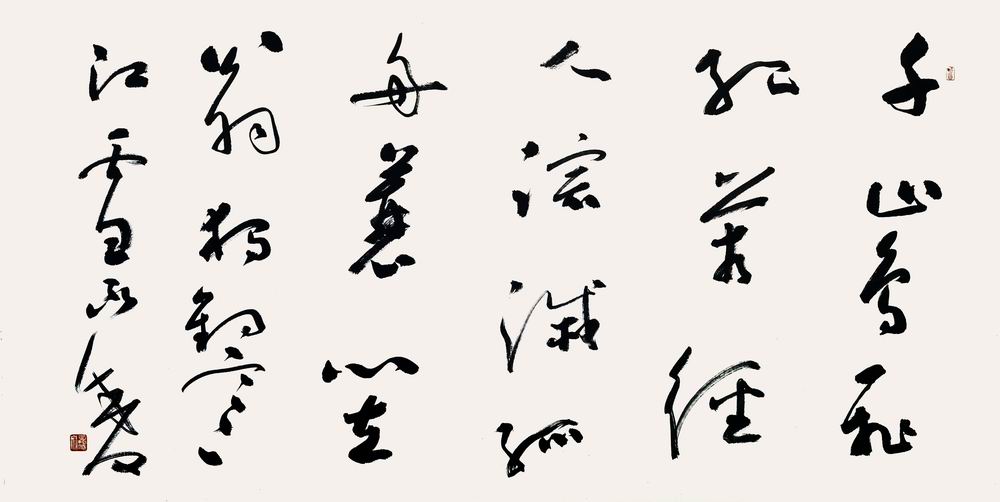 千山鳥飛
絕萬徑
人踪滅孤
舟蓑笠
翁獨釣寒
江雪